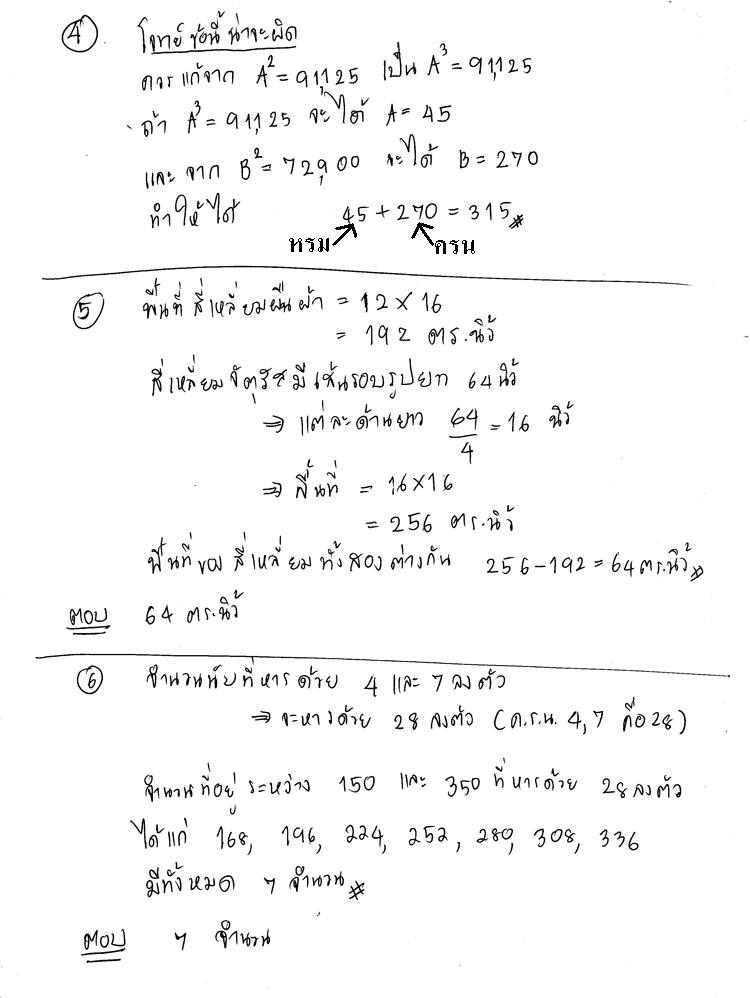 ④ โจทย์ข้อนี้น่าจะผิด
ควรแก้จาก A² = 91,125 เป็น A³ = 91,125
ถ้า A³ = 91,125 จะได้ A = 45
และ จาก B² = 72,900 จะได้ B = 270
ทำให้ได้ 45 + 270 = 315 #
หรม ครน
⑤ พื้นที่สี่เหลี่ยมผืนผ้า = 12 × 16
= 192 ตร.นิ้ว
สี่เหลี่ยมจัตุรัสมีเส้นรอบรูปยาว 64 นิ้ว
⇒ แต่ละด้านยาว 64/4 = 16 นิ้ว
⇒ พื้นที่ = 16×16
= 256 ตร.นิ้ว
พื้นที่ของสี่เหลี่ยมทั้งสองต่างกัน 256-192 = 64 ตร.นิ้ว #
ตอบ 64 ตร.นิ้ว
⑥ จำนวนนับที่หารด้วย 4 และ 7 ลงตัว
⇒ จะหารด้วย 28 ลงตัว (ค.ร.น. 4, 7 คือ 28)
จำนวนที่อยู่ระหว่าง 150 และ 350 ที่หารด้วย 28 ลงตัว
ได้แก่ 168, 196, 224, 252, 280, 308, 336
มีทั้งหมด 7 จำนวน #
ตอบ 7 จำนวน